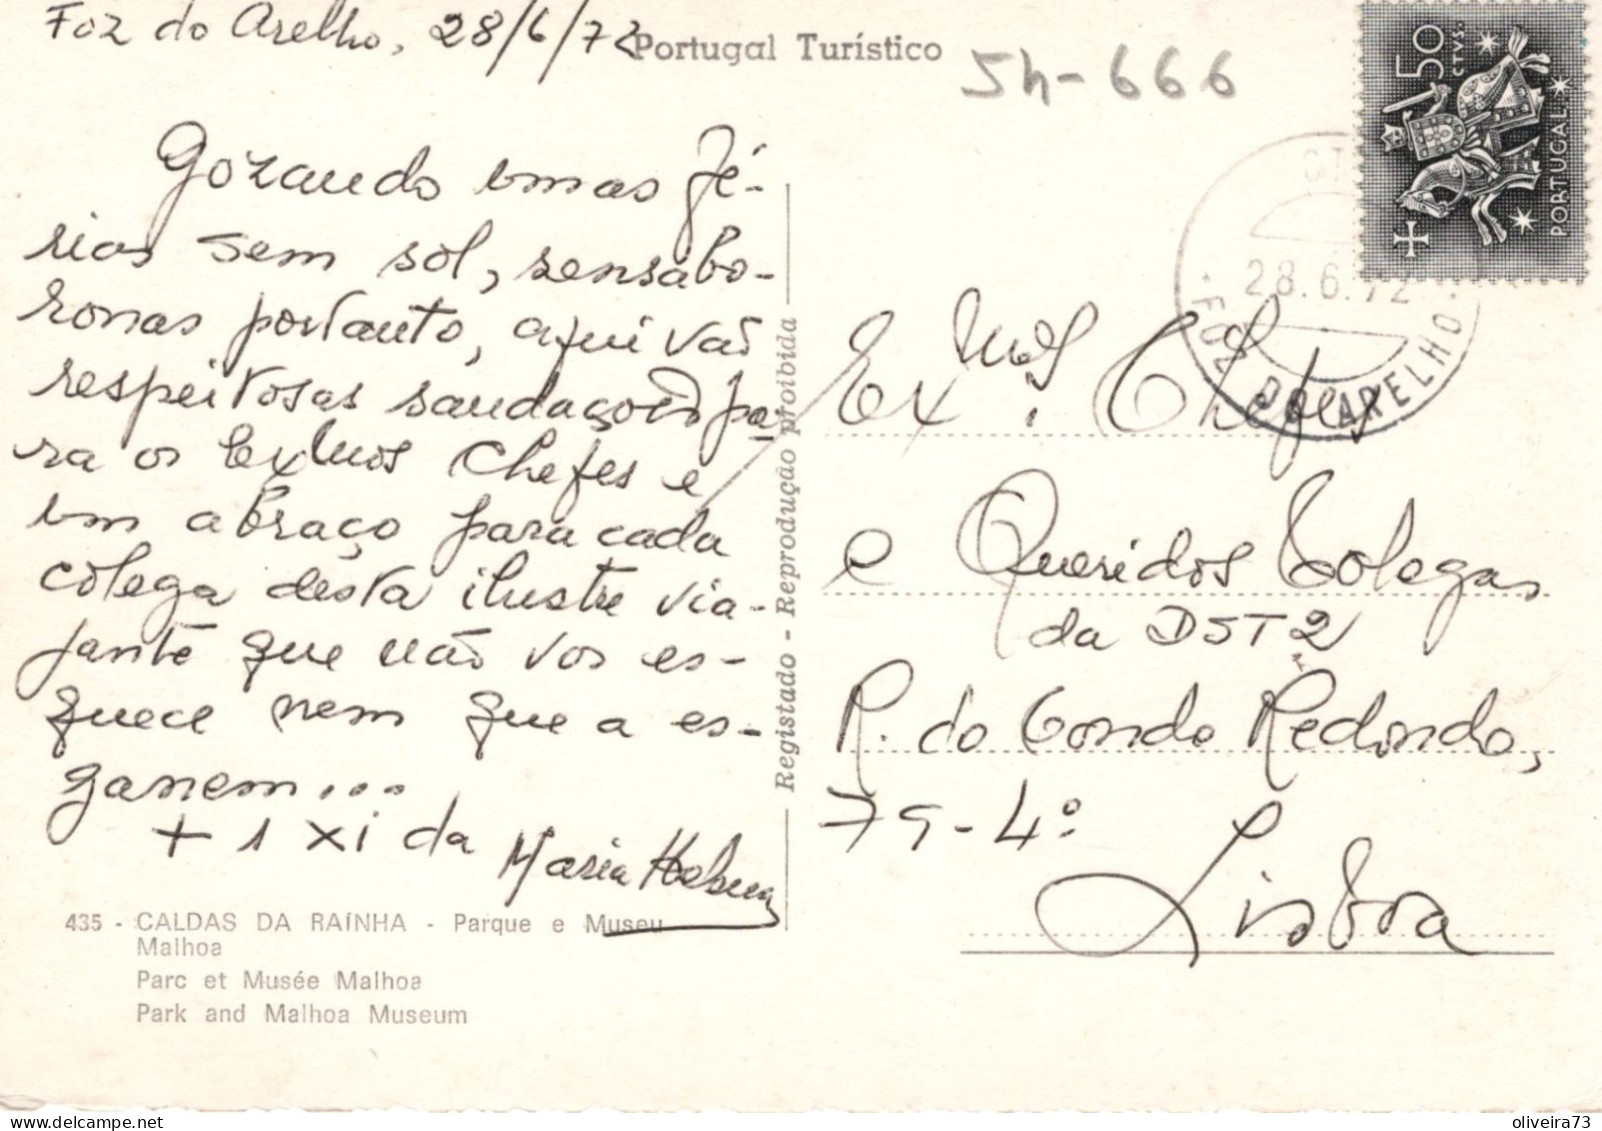 Foz do Arelho, 28/6/72
Portugal Turístico
Sh-666
50
CTVS.
PORTUGAL
28.6.72
FOZ DO ARELHO
Gozando umas fé-
rias sem sol, sensabo-
ronas portanto, aqui vão
respeitosas saudações pa-
ra os Exmos Chefes e
um abraço para cada
colega desta ilustre via-
jante que não vos es-
quece nem que a es-
ganem...
+ 1 xi da
Maria
Registado - Reprodução proibida
Exmos. Chefes
e Queridos Colegas
da DST2
R. do Conde Redondo,
79-4º
Lisboa
435 - CALDAS DA RAÍNHA - Parque e Museu
Malhoa
Parc et Musée Malhoa
Park and Malhoa Museum
oliveira73